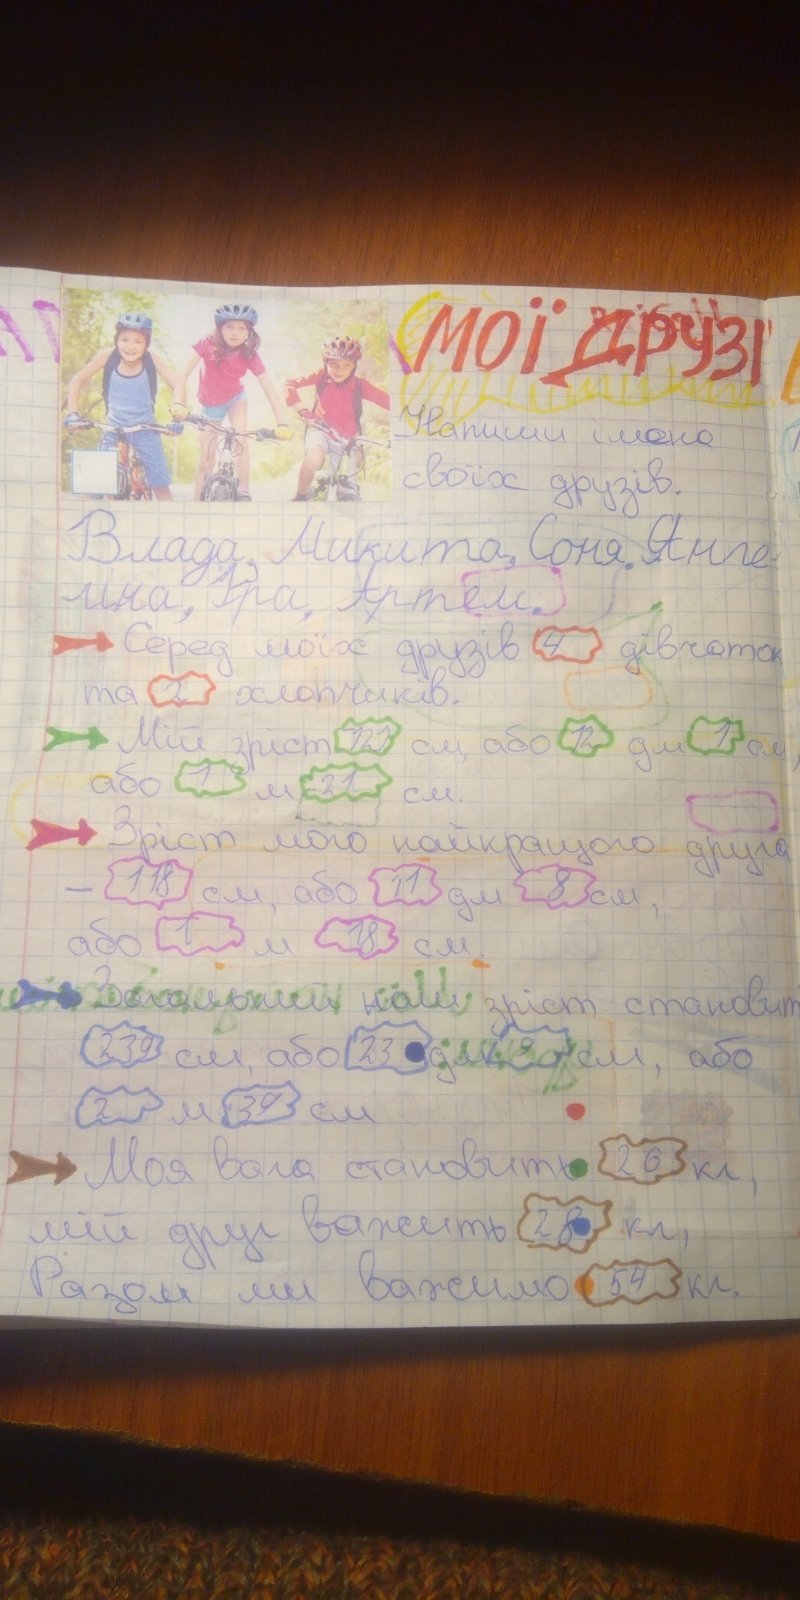 МОЇ ДРУЗІ
Напиши імена
своїх друзів.
Влада, Микита, Соня, Анге
ліна, Іра, Артем.
Серед моїх друзів 4 дівчаток
та 2 хлопчиків.
Мій зріст 121 см, або 12 дм 1 см,
або 1 м 21 см.
Зріст мого найкращого друга
– 118 см, або 11 дм 8 см,
або 1 м 18 см.
Загальний наш зріст становить
239 см, або 23 дм 9 см, або
2 м 39 см
Моя вага становить 26 кг,
мій друг важить 28 кг,
Разом ми важимо 54 кг.